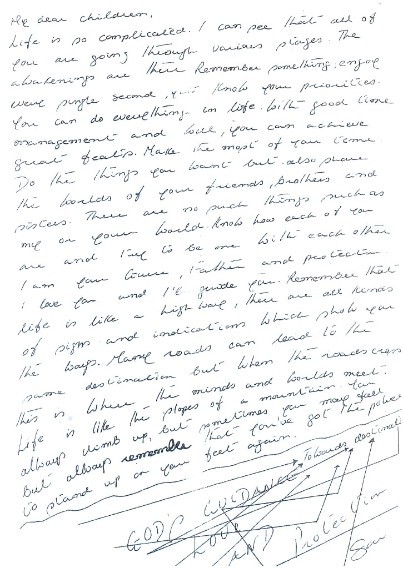 My dear children,
Life is so complicated. I can see that all of
you are going through various stages. The
awakenings are there Remember something: enjoy
every single second, but know your priorities.
You can do everything in life. With good time
management and will, you can achieve
great feats. Make the most of your time.
Do the things you want but also share
the worlds of your friends, brothers and
sisters. There are no such things such as
my or your world Know how each of you
are and try to be one with each other
I am your Father and protector.
I love you and I'll guide you. Remember that
life is like a high way, there are all kinds
of signs and indications which show you
the ways. Many roads can lead to the
same destination but when the roads cross
this is where the minds and worlds meet.
Life is like the slopes of a mountain. You
always climb up, but sometimes you may fall
But always remember that you've got the power
to stand up on your feet again.
Towards destination
GOD'S GUIDANCE
LOVE
AND PROTECTION